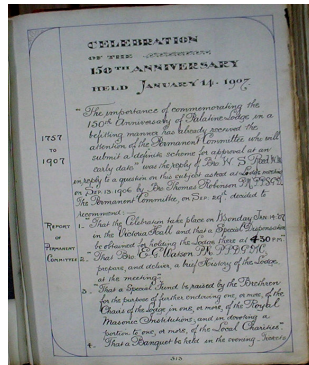 CELEBRATION
OF THE
150TH ANNIVERSARY
HELD JANUARY 14. 1907
1757
TO
1907
"The importance of commemorating the
150th Anniversary of Palatine Lodge in a
befitting manner has already received the
attention of the Permanent Committee who will
submit a definite scheme for approval at an
early date" was the reply of Bro W. S.
in reply to a question on this subject asked at Lodge meeting
on Dec 13. 1906 by Bro Thomas Robinson P.M.
The Permanent Committee, on Dec. 29th decided to
recommend:-
REPORT
OF
PERMANENT
COMMITTEE
1. "That the Celebration take place on Monday Jan 14 '07
in the Victoria Hall and that a Special Dispensation
be obtained for holding the Lodge there at 4-30 PM"
2. "That Bro E. G. Watson P.M.
prepare, and deliver, a brief History of the Lodge,
at the meeting"
3. "That a Special Fund be raised by the Brethren
for the purpose of further endowing one, or more, of the
Chairs of the Lodge in one, or more, of the Royal
Masonic Institutions; and in devoting a
portion to one, or more, of the Local Charities"
4. "That a Banquet be held in the evening.